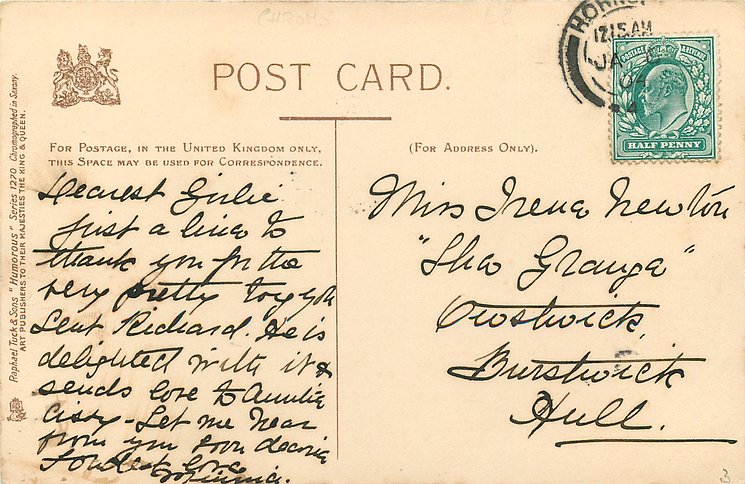 POST CARD.
FOR POSTAGE, IN THE UNITED KINGDOM ONLY,
THIS SPACE MAY BE USED FOR CORRESPONDENCE.
(FOR ADDRESS ONLY).
Raphael Tuck & Sons "Humorous" Series 1270 Chromographed in Saxony.
ART PUBLISHERS TO THEIR MAJESTIES THE KING & QUEEN.
12.15 AM
JA
04
POSTAGE & REVENUE
HALF PENNY
Dearest Girlie
Just a line to
thank you for the
very pretty toy you
sent Richard. He is
delighted with it &
sends love to Auntie
Cissy - Let me hear
from you soon dearie
Fondest love
Miss Irene Newton
"The Grange"
Owstwick
Burstwick
Hull.
3